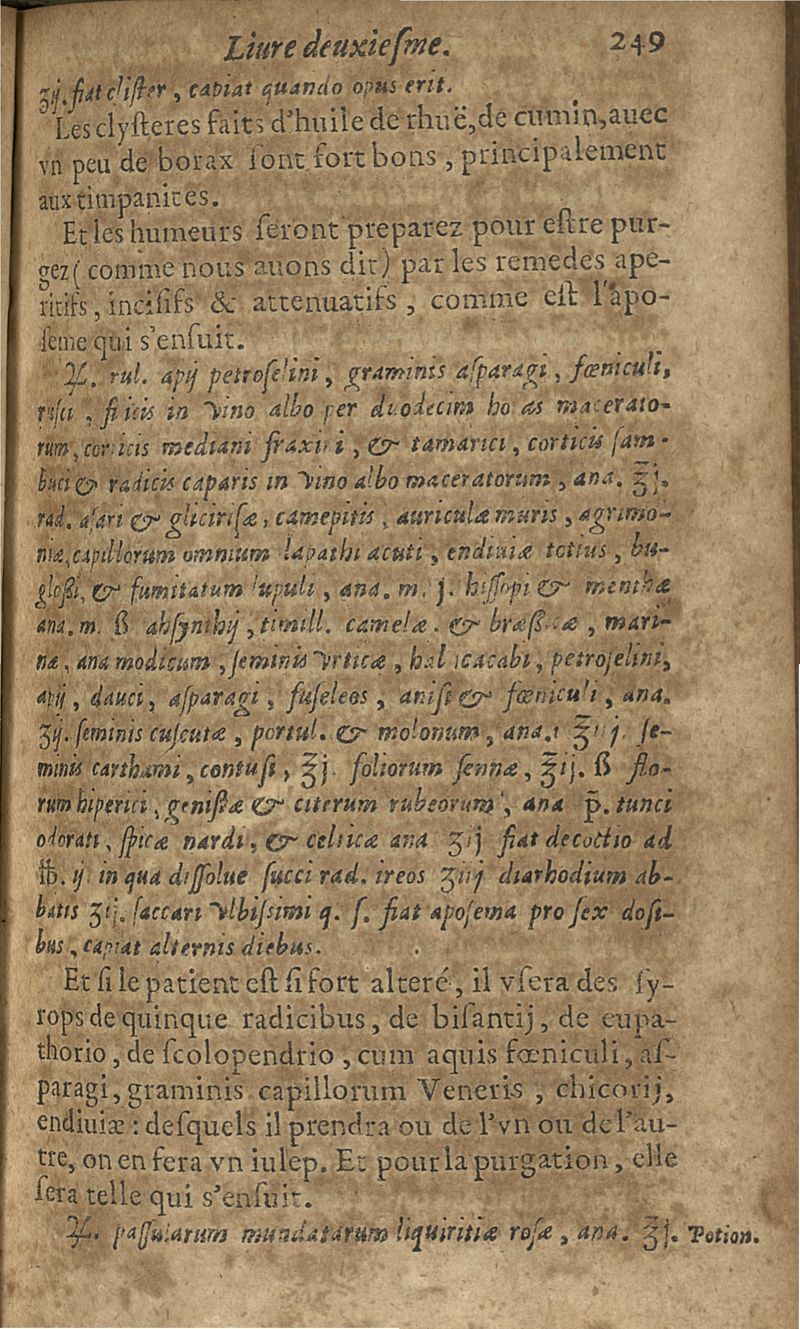 Liure deuxieſme. 249
ʒij. fiat cliſter, capiat quando opus erit.
Les clyſteres faits d'huile de rhuë, de cumin, auec
vn peu de borax ſont fort bons, principalement
aux timpanites.
Et les humeurs ſeront preparez pour eſtre pur-
gez (comme nous auons dit) par les remedes ape-
ritifs, inciſifs & attenuatifs, comme eſt l'apo-
ſeme qui s'enſuit.
℞. rul. apij petroſelini, graminis aſparagi, fœniculi,
ruſci, in vino albo per duodecim horas macerato-
rum, corticis mediani fraxini, & tamarici, corticis ſam-
buci & radicis caparis in vino albo maceratorum, ana. ℥j.
rad. aſari & gliciriſæ, camepitis, auriculæ muris, agrimo-
niæ, capillorum omnium lapathi acuti, endiuiæ totius, bu-
gloſſi, & fumitatum lupuli, ana. m. j. hiſſopi & menthæ
ana. m. ß abſynthij, timill. camelæ. & braſſicæ, mari-
næ, ana modicum, ſeminis vrticæ, halicacabi, petroſelini,
apij, dauci, aſparagi, ſuſeleos, aniſi & fœniculi, ana.
ʒij. ſeminis cuſcutæ, portul. & molonum, ana. ſe-
minis carthami, contuſi, ℥j. foliorum ſennæ, ℥ij. ß flo-
rum hiperici, geniſtæ & citerum rubeorum, ana p̃. iunci
odorati, ſpicæ nardi, & celticæ ana ʒij fiat decoctio ad
℔. ij. in qua diſſolue ſucci rad. ireos ʒiij diarhodium ab-
batis ʒij. ſaccari vlbiſsimi q. ſ. fiat apoſema pro ſex doſi-
bus, capiat alternis diebus.
Et ſi le patient eſt ſi fort alteré, il vſera des ſy-
rops de quinque radicibus, de biſantij, de eupa-
thorio, de ſcolopendrio, cum aquis fœniculi, aſ-
paragi, graminis capillorum Veneris, chicorij,
endiuiæ : deſquels il prendra ou de l'vn ou de l'au-
tre, on en fera vn iulep. Et pour la purgation, elle
ſera telle qui s'enſuit.
℞. paſſularum mundatarum liquiritiæ roſæ, ana. ℥j. Potion.